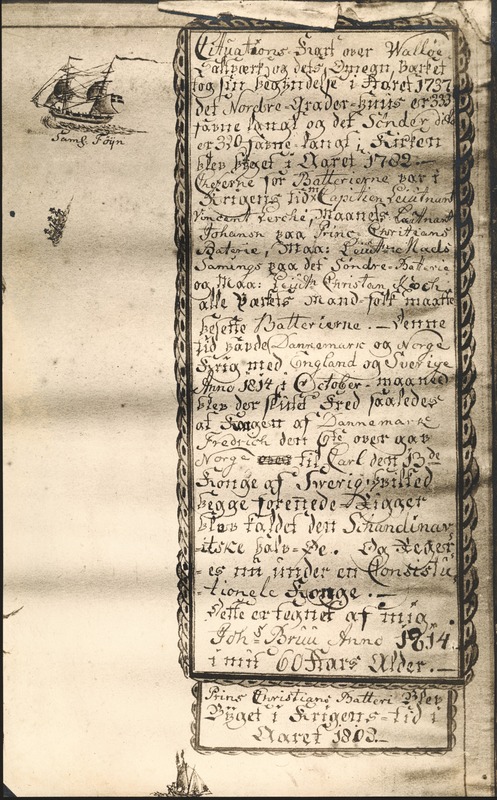 Cituations-Kart over Walløe
Saltværk, og dets Omegn, værket
tog sin begyndelse i Aaret 1737
det Nordre-Grader-Huus er 333
favne langt og det Sønder dito
er 330 favne langt, Kirken
blev byget i Aaret 1782.—
Cheferne for Batterierne var i
Krigens tid: Capitien Leiutnant
Vincent Lerche, Maaneds Leiutnant
Johansen paa Prins Christians
Baterie, Maa: Leiutn: Mads
Samings paa det Søndre-Batterie
og Maa: Leiutn Christan Koch
alle Værkts Mand-folk maatte
besette Batterierne.— Denne
tid havde Dannemark og Norge
Krig med England og Sverige
Anno 1814 i October-maaned
blev der slutd Fred saaledes
at Kongen af Dannemark
Fredrich den 6te over gav
Norge til Carl den 13de
Konge af Sverig, hvilked
begge forenede-Rigger
blev kaldet den Skandinav-
-itske halv-Øe. Og Reger-
-es nu under en Constitu-
-tionele Konge.—
Dette er tegnet af mig
Johs Bruu Anno 1814.
i mit 60 Aars Alder.—
Prins Christians Batteri Blev
Byget i Krigens-tid i
Aaret 1808.—
Sams Føyn